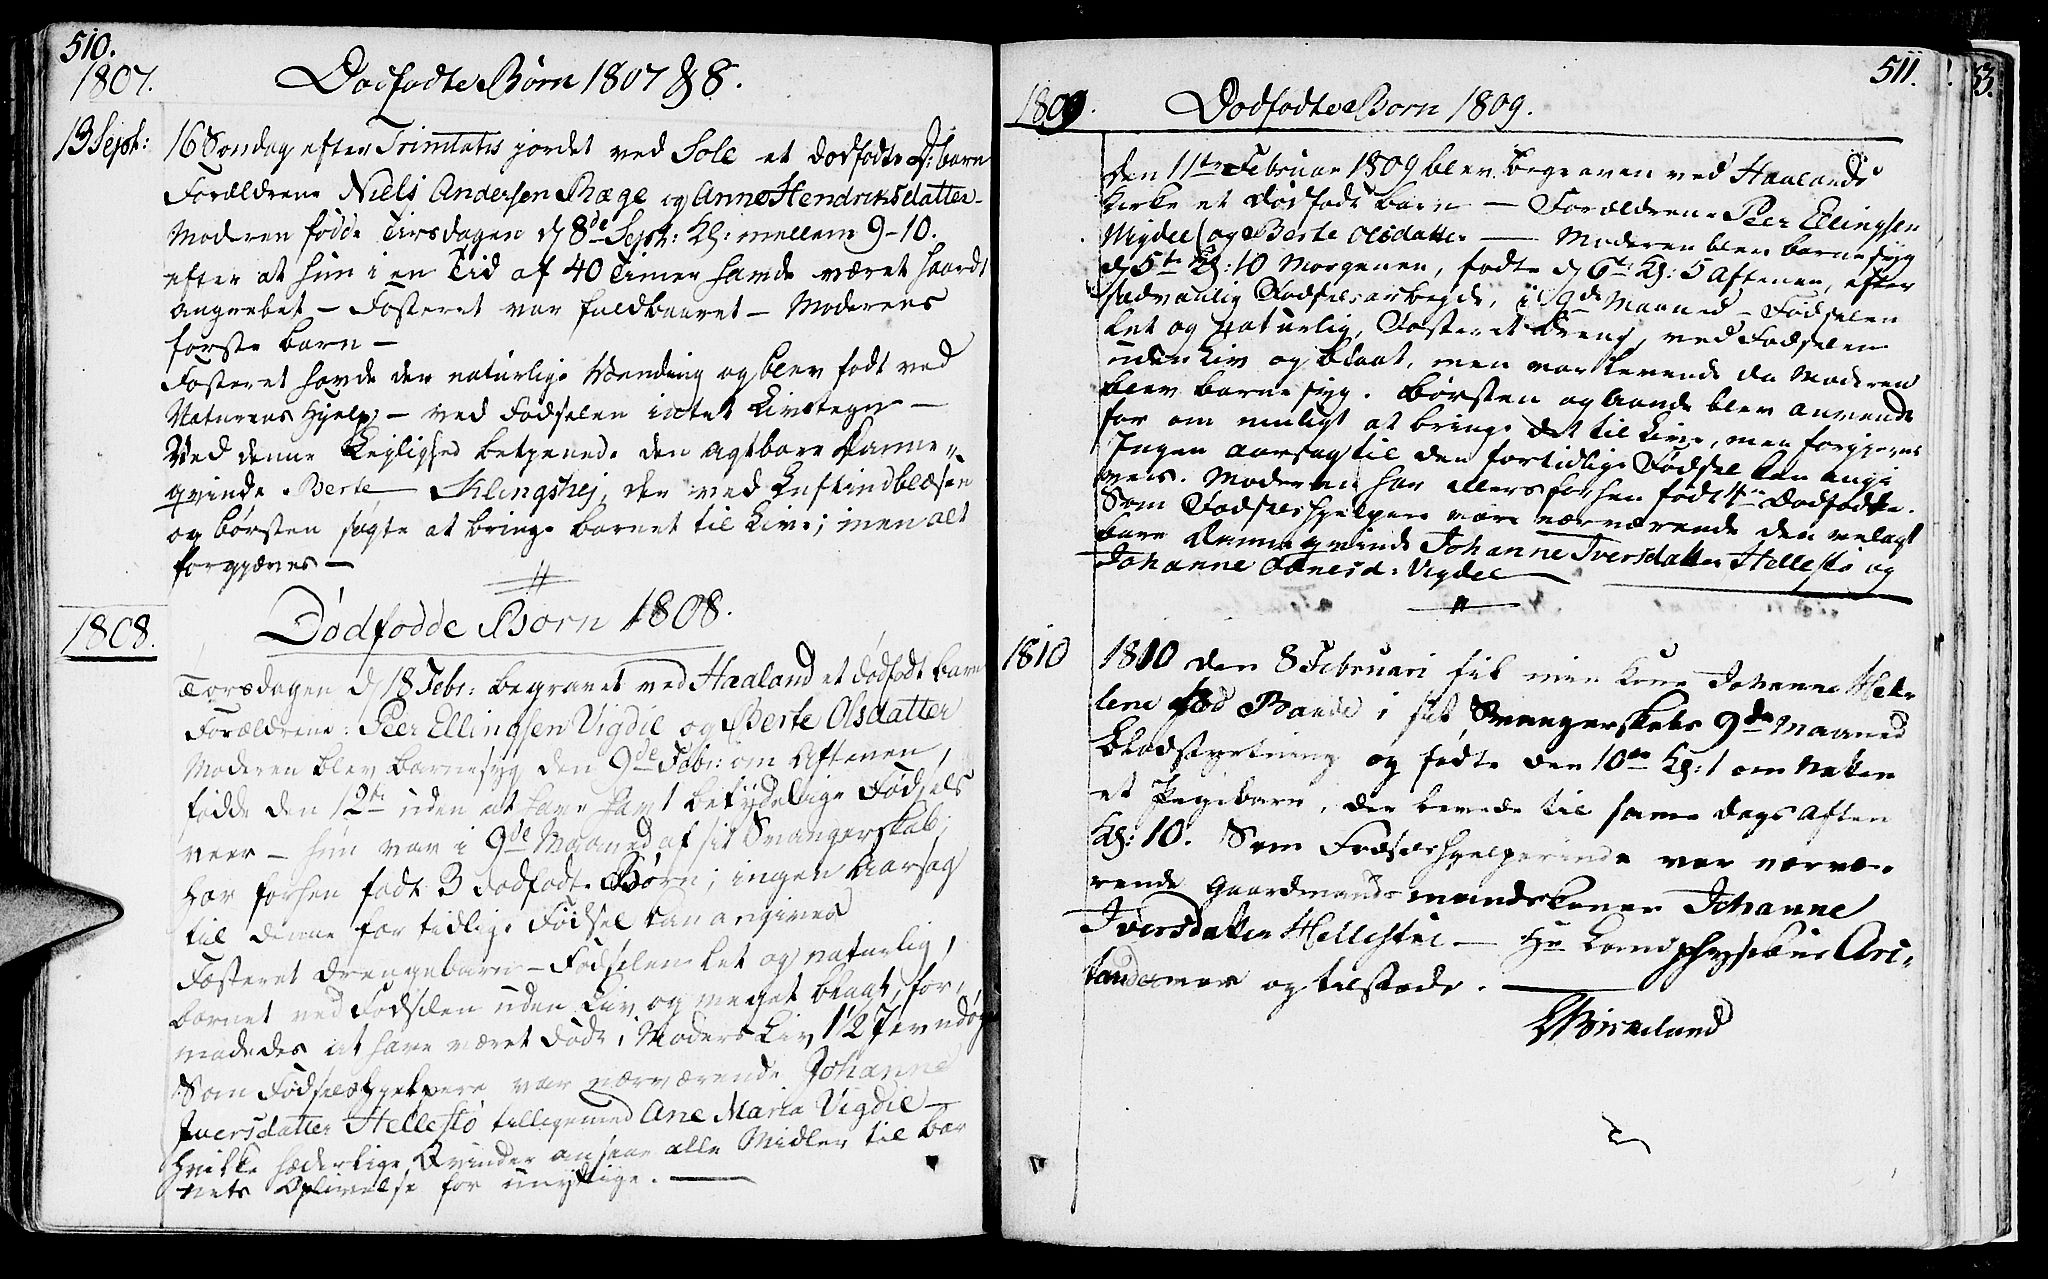 510.
1807.
Dødfødte Børn 1807 & 8.
13 Sept:
16 Søndag efter Trinitatis jordet ved Sole et dødfødte D: barn
Forældrene Niels Andersen Ræge og Anne Hendriksdatter -
Moderen fødde Tirsdagen d 8de Sept: Kl: mellem 9-10.
efter at hun i en Tid af 40 Timer havde været haardt
angrebet - Fosteret var fuldbaaret - Moderens
første barn -
Fosteret havde den naturlige Vending og blev født ved
Naturens Hjelp - ved Fødselen intet Livstegn -
Ved denne Leylighed betjenede den agtbare Danne-
qvinde Berte Klingshej, der ved Luftindblæsen
og børsten søgte at bringe barnet til Live; men alt
forgjæves -
1808.
Dødfødde Børn 1808.
Torsdagen d 18 Febr: begravet ved Haaland et dødfødt barn
Forældrene: Peer Ellingsen Vigdel og Berte Olsdatter
Moderen blev barnesyg den 9de Febr: om Aftenen,
fødde den 12te uden at have havt betydelige Fødsels
veer - hun var i 9de Maaned af sit Svangerskab;
har forhen født 3 dødfødte Børn; ingen Aarsag
til denne for tidlige Fødsel kan angives
Fosteret Drengebarn - Fødselen let og naturlig,
barnet ved Fødselen uden Liv og meget blaat, for-
modedes at have været død i Moders Liv 1 a 2 Jevndøgn
Som Fødselshjelpere var nærværende Johanne
Iversdatter Hellestø tilligemed Ane Maria Vigdel -
hvilke hæderlige Qvinder ansaae alle Midler til bar
nets Oplivelse for unyttige.
511.
1809.
Dødfødte Børn 1809.
Den 11te Februar 1809 blev begraven ved Haalands
Kirke et dødfødt barn - Forældrene Peer Ellingsen
Vigdel og Berte Olsdatter - Moderen blev barnesyg
d 5te Kl: 10 Morgenen, fødte d 6te Kl: 5 Aftenen, efter
sædvanlig Fødselsarbeyde, i 9de Maaned - Fødselen
let og naturlig, Fosteret Dreng, ved Fødselen
uden Liv og blaat, men var levende da Moderen
blev barnesyg. børsten og aande blev anvendt
for om muligt at bringe det til Live, men forgjæves
Ingen aarsag til den fortidlige Fødsel kan angi
ves. Moderen har ellers forhen født 4re Dødfødte.
Som Fødselshjelpere vare nærværende den velagt
bare Danneqvinde Johanne Iversdatter Hellestø og
Johanne Tønesd: Vigdel
1810
1810 den 8 Februari fik min Kone Johanne Hele
lene fød Bande i sit Svangerskabs 9de Maaned
Blodstyrtning og fødte den 10de Kl: 1 om Natten
et Pigebarn, der levede til samme Dags Aften
Kl: 10. Som Fødselshjelperinde var nærvæ-
rende Gaardmands mandskonen Johanne
Iversdatter Hellestøe - Hr Landphysicus Ari-
tander var og tilstæde.